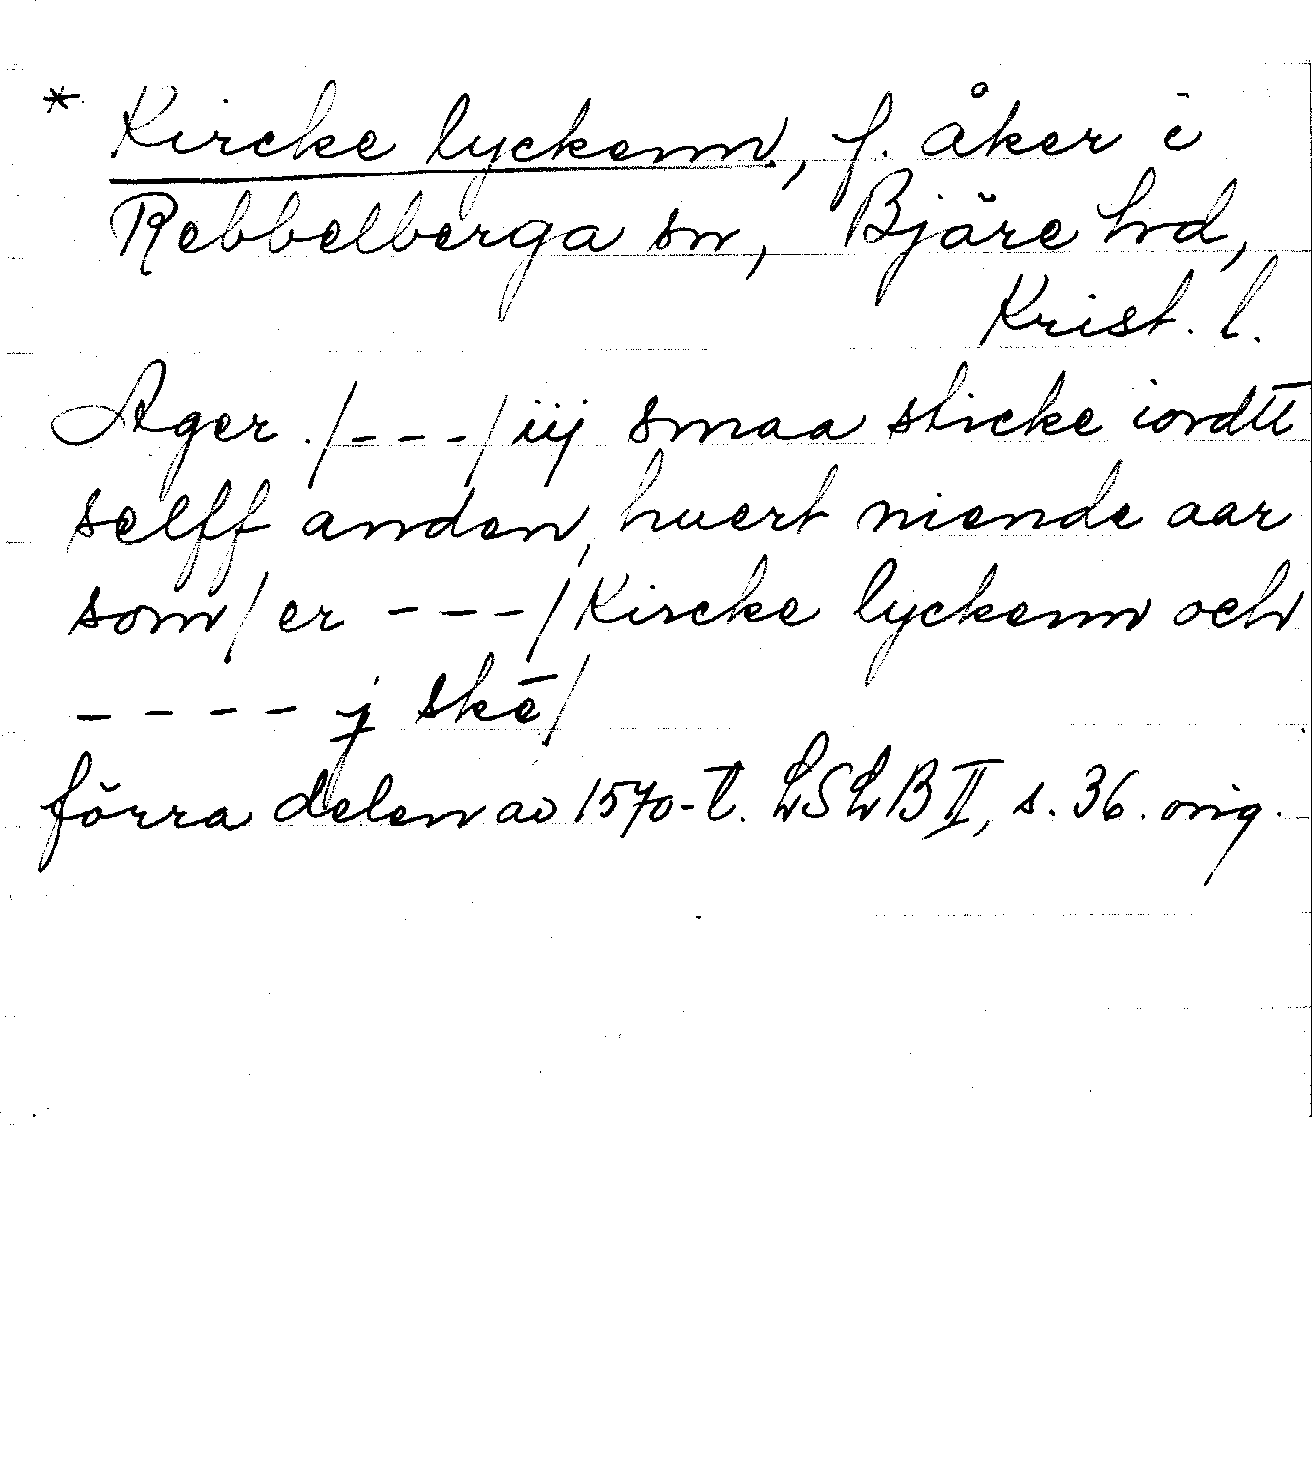 * Kircke lyckenn, f. åker i
Rebbelberga sn, Bjäre hd,
Krist. l.
Ager /---/ iij smaa sticke iordtt
selff anden, huert niende aar
som/ er ---/ Kircke lyckenn och
---- j skē/
förra delen av 1570-t. LSLB II, s. 36. orig.